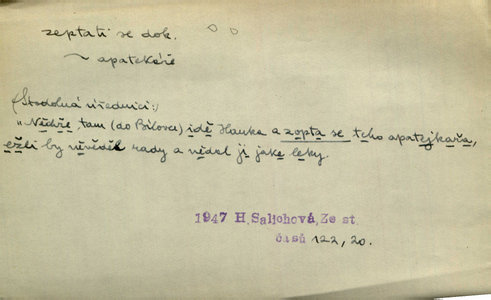 zeptati se dok.
~ apatekáře
(Stodolná úřednici:)
"Něchře, tam (do Bílovce) idě Hanka a zopta se teho apatejkařa,
ežli by něvěděl rady a nědal ji jake leky.
1947 H. Salichová, Ze st.
časů 122, 20.